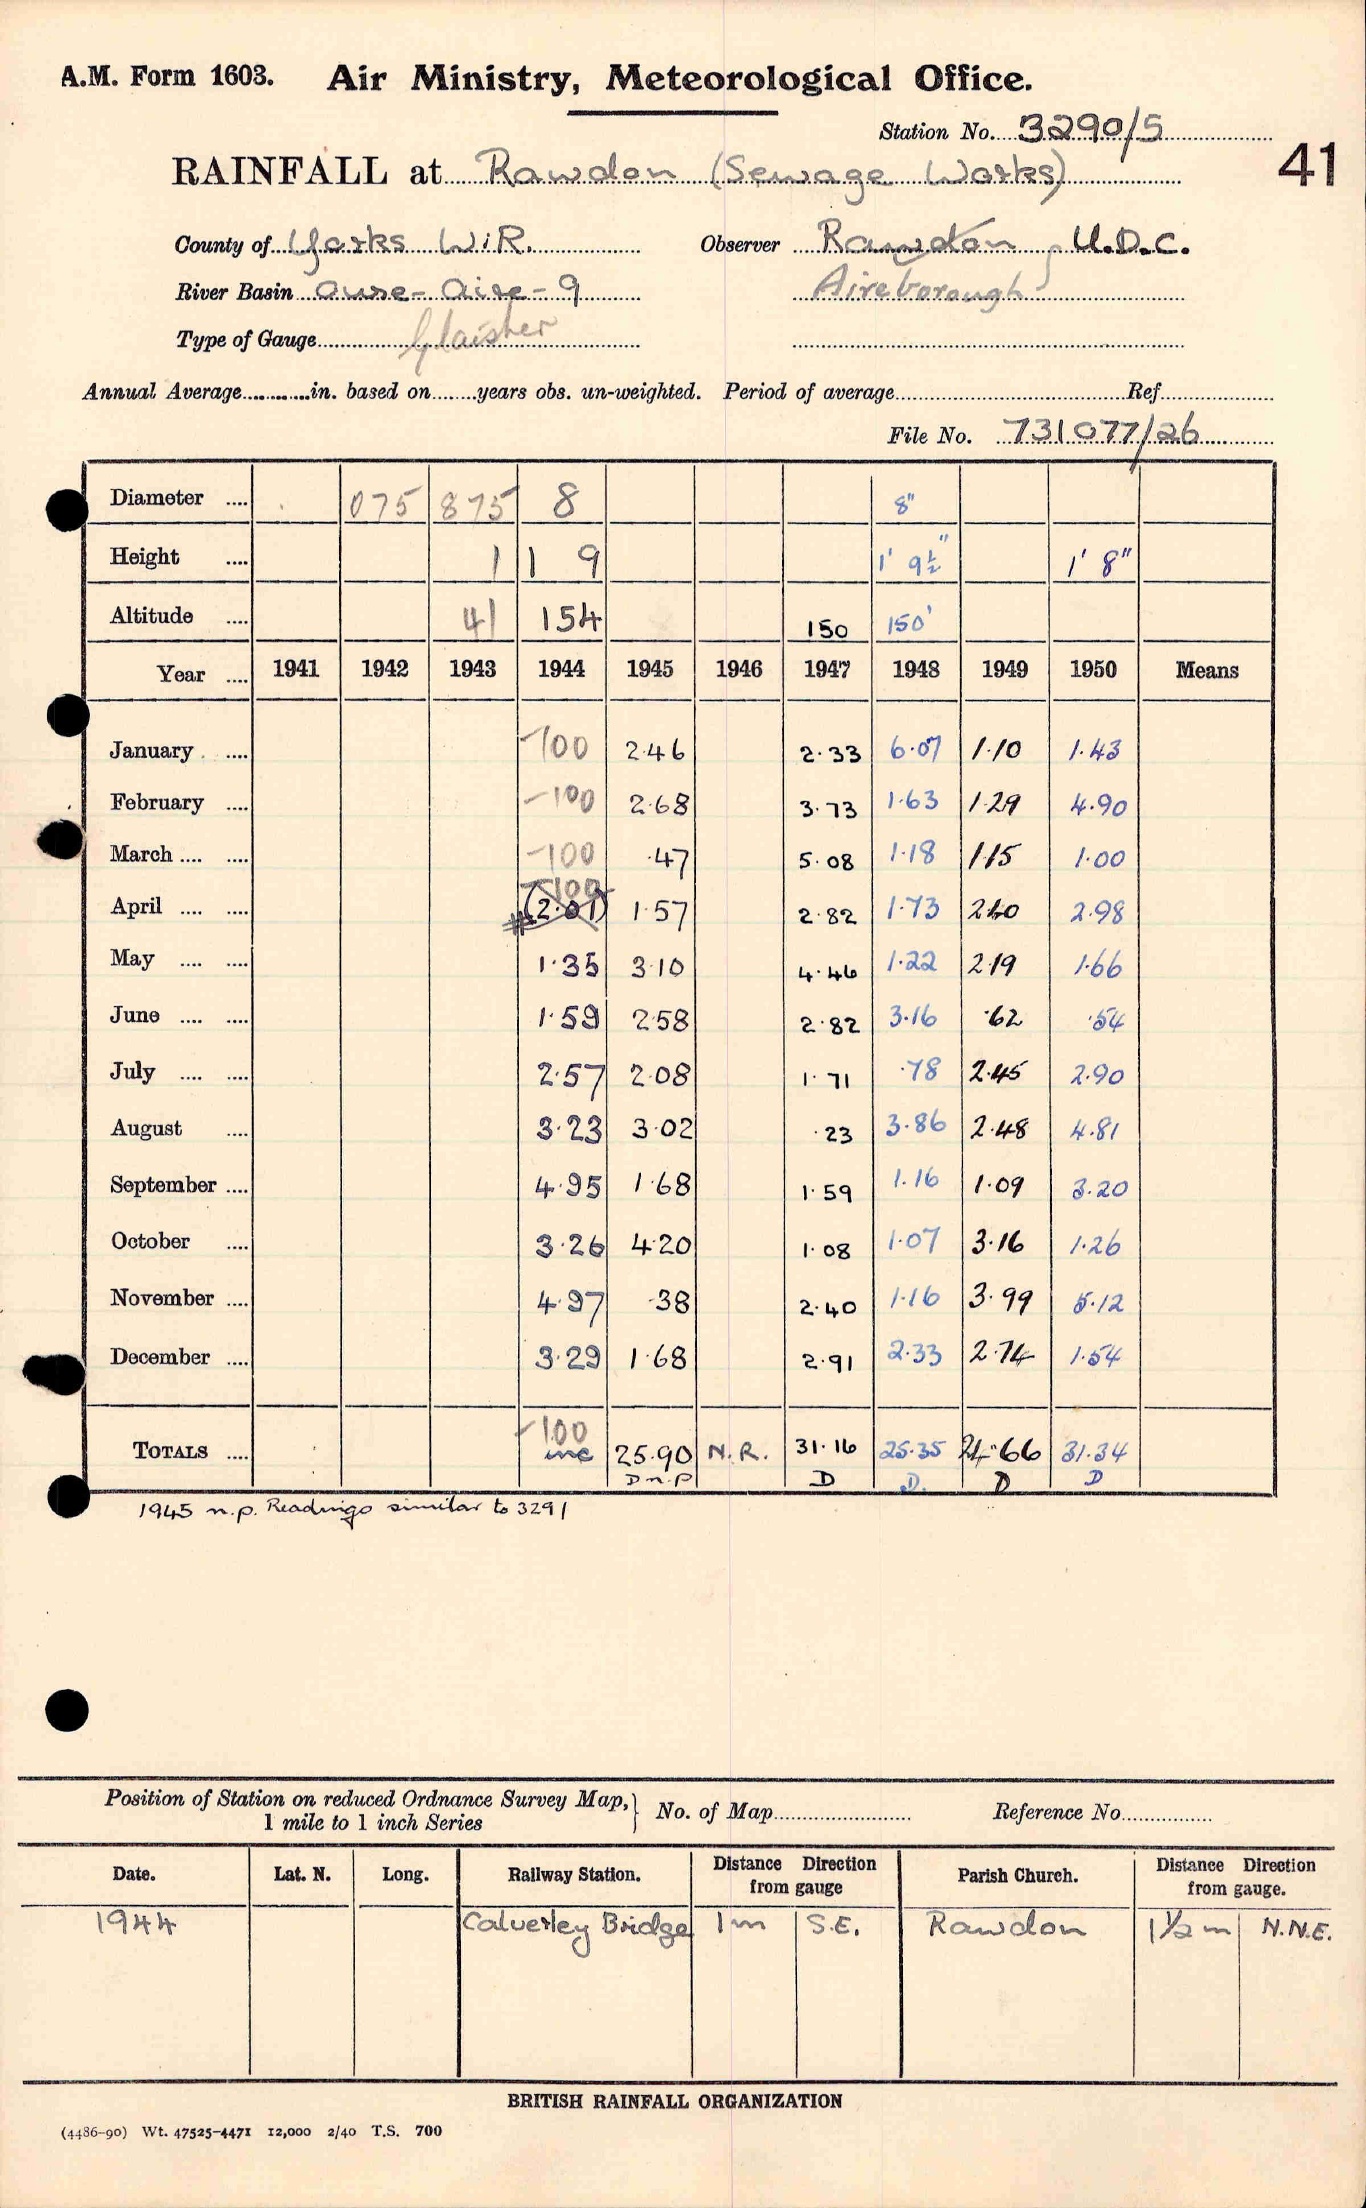 A.M. Form 1603. Air Ministry, Meteorological Office.
Station No. 3290/5
41
RAINFALL at Rawdon (Sewage Works)
County of Yorks W.R. Observer Rawdon U.D.C.
River Basin Ouse - Aire - 9 Aireborough
Type of Gauge Glaisher
Annual Average in. based on years obs. un-weighted. Period of average Ref
File No. 731077/26
Diameter 075 875 8 8"
Height 1 1 9 1' 9½" 1' 8"
Altitude 41 154 150 150'
Year 1941 1942 1943 1944 1945 1946 1947 1948 1949 1950 Means
January -100 2.46 2.33 6.07 1.10 1.43
February -100 2.68 3.73 1.63 1.29 4.90
March -100 .47 5.08 1.18 1.15 1.00
-100
April (2.01) 1.57 2.82 1.73 2.40 2.98
May 1.35 3.10 4.46 1.22 2.19 1.66
June 1.59 2.58 2.82 3.16 .62 .54
July 2.57 2.08 1.71 .78 2.45 2.90
August 3.23 3.02 .23 3.86 2.48 4.81
September 4.95 1.68 1.59 1.16 1.09 3.20
October 3.26 4.20 1.08 1.07 3.16 1.26
November 4.97 .38 2.40 1.16 3.99 5.12
December 3.29 1.68 2.91 2.33 2.74 1.54
-100
TOTALS inc 25.90 N.R. 31.16 25.35 24.66 31.34
D n.p D D. D D
1945 n.p. Readings similar to 3291
Position of Station on reduced Ordnance Survey Map, 1 mile to 1 inch Series } No. of Map Reference No.
Date. Lat. N. Long. Railway Station. Distance Direction from gauge Parish Church. Distance Direction from gauge.
1944 Calverley Bridge 1 m S.E. Rawdon 1½ m N.N.E.
BRITISH RAINFALL ORGANIZATION
(4486-90) Wt. 47525-4471 12,000 2/40 T.S. 700